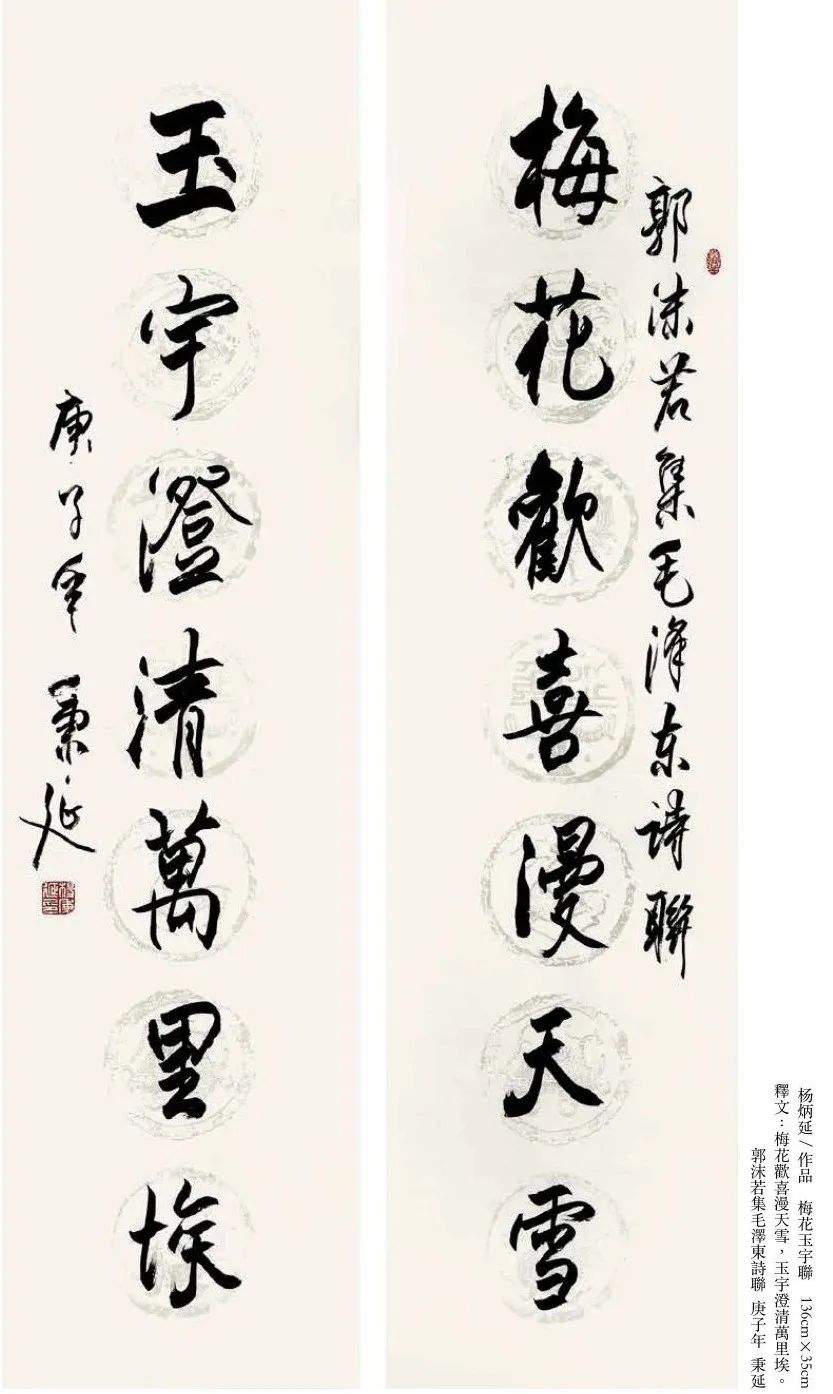 郭沫若集毛泽东诗联
梅花歡喜漫天雪
玉宇澄清萬里埃
庚子年 秉延
杨炳延/作品 梅花玉宇聯 136cm×35cm
釋文：梅花歡喜漫天雪，玉宇澄清萬里埃。
郭沫若集毛澤東詩聯 庚子年 秉延